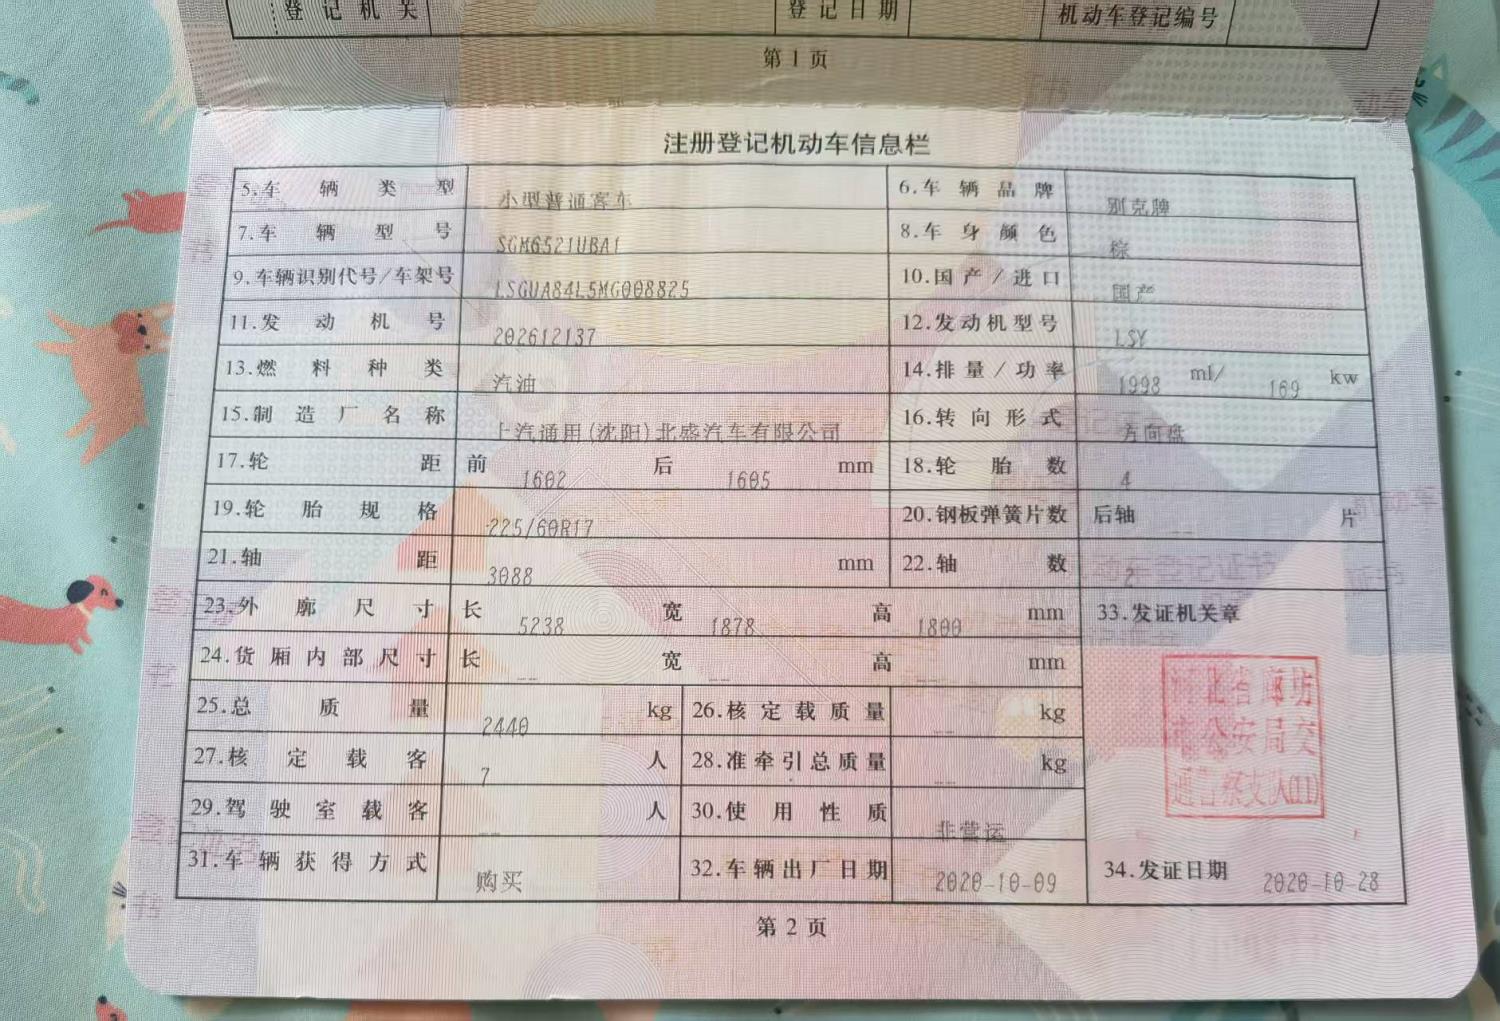 登记机关 登记日期 机动车登记编号
第1页
注册登记机动车信息栏
5.车辆类型 小型普通客车 6.车辆品牌 别克牌
7.车辆型号 SGM6521UBA1 8.车身颜色 棕
9.车辆识别代号/车架号 LSGUA84L5MG008825 10.国产/进口 国产
11.发动机号 202612137 12.发动机型号 LSY
13.燃料种类 汽油 14.排量/功率 1998 ml/ 169 kw
15.制造厂名称 上汽通用(沈阳)北盛汽车有限公司 16.转向形式 方向盘
17.轮距 前 1602 后 1605 mm 18.轮胎数 4
19.轮胎规格 225/60R17 20.钢板弹簧片数 后轴 -- 片
21.轴距 3088 mm 22.轴数 2
23.外廓尺寸 长 5238 宽 1878 高 1800 mm 33.发证机关章
24.货厢内部尺寸 长 -- 宽 -- 高 -- mm
河北省廊坊
市公安局交
通警察支队(11)
25.总质量 2440 kg 26.核定载质量 -- kg
27.核定载客 7 人 28.准牵引总质量 -- kg
29.驾驶室载客 -- 人 30.使用性质 非营运
31.车辆获得方式 购买 32.车辆出厂日期 2020-10-09 34.发证日期 2020-10-28
第2页